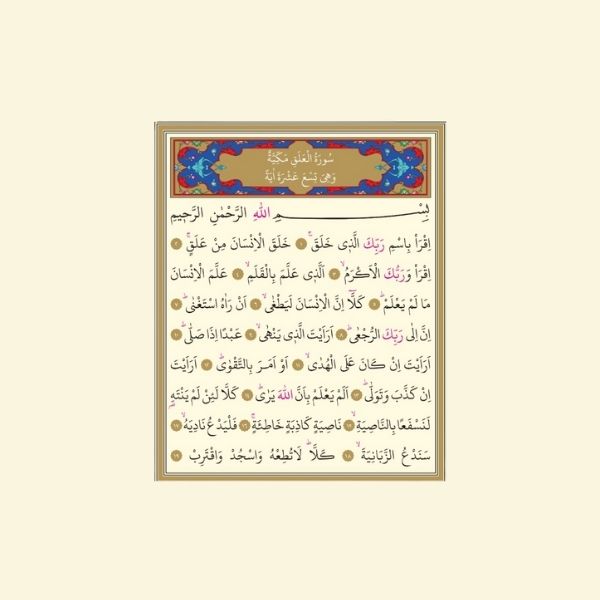 سُورَةُ الْعَلَقِ مَكِّيَّةٌ
وَهِىَ تِسْعَ عَشْرَةَ اٰيَةً
بِسْــــــــــمِ اللّٰهِ الرَّحْمٰنِ الرَّحٖيمِ
اِقْرَأْ بِاسْمِ رَبِّكَ الَّذٖى خَلَقَۚ ﴿١﴾ خَلَقَ الْاِنْسَانَ مِنْ عَلَقٍۚ ﴿٢﴾
اِقْرَأْ وَرَبُّكَ الْاَكْرَمُۙ ﴿٣﴾ اَلَّذٖى عَلَّمَ بِالْقَلَمِۙ ﴿٤﴾ عَلَّمَ الْاِنْسَانَ
مَا لَمْ يَعْلَمْؕ ﴿٥﴾ كَلَّٓا اِنَّ الْاِنْسَانَ لَيَطْغٰىۙ ﴿٦﴾ اَنْ رَاٰهُ اسْتَغْنٰىؕ ﴿٧﴾
اِنَّ اِلٰى رَبِّكَ الرُّجْعٰىؕ ﴿٨﴾ اَرَاَيْتَ الَّذٖى يَنْهٰىۙ ﴿٩﴾ عَبْدًا اِذَا صَلّٰىؕ ﴿١٠﴾
اَرَاَيْتَ اِنْ كَانَ عَلَى الْهُدٰىۙ ﴿١١﴾ اَوْ اَمَرَ بِالتَّقْوٰىؕ ﴿١٢﴾ اَرَاَيْتَ
اِنْ كَذَّبَ وَتَوَلّٰىؕ ﴿١٣﴾ اَلَمْ يَعْلَمْ بِاَنَّ اللّٰهَ يَرٰىؕ ﴿١٤﴾ كَلَّا لَئِنْ لَمْ يَنْتَهِ
لَنَسْفَعًا بِالنَّاصِيَةِۙ ﴿١٥﴾ نَاصِيَةٍ كَاذِبَةٍ خَاطِئَةٍۚ ﴿١٦﴾ فَلْيَدْعُ نَادِيَهُۙ ﴿١٧﴾
سَنَدْعُ الزَّبَانِيَةَۙ ﴿١٨﴾ كَلَّاؕ لَا تُطِعْهُ وَاسْجُدْ وَاقْتَرِبْ ﴿١٩﴾